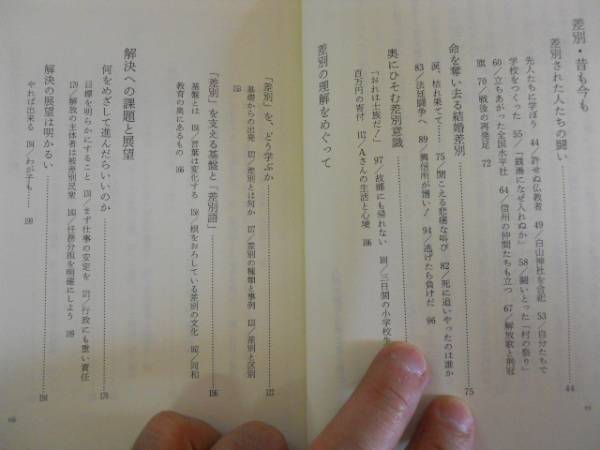 差別・昔も今も
差別された人たちの闘い…………44
先人たちに学ぼう 44／許せぬ仏教者 49／白山神社を合祀 53／自分たちで
学校をつくった 55／「銭湯になぜ入れぬか」 58／闘いとった「村の祭り」
60／立ちあがった全国水平社 64／信州の仲間たちも立つ 67／解放歌と荊冠
旗 70／戦後の再発足 72
命を奪い去る結婚差別…………75
涙、枯れ果てて…… 75／聞こえる悲痛な叫び 82／死に追いやったのは誰か
83／法括闘争へ 89／興信所が憎い！ 94／逃げたら負けだ 96
奥にひそむ差別意識
「おれは士族だ！」 97／故郷にも帰れない 101／三日間の小学校生
百万円の寄付 112／Aさんの生活と心境
差別の理解をめぐって
「差別」を、どう学ぶか…………122
基礎からの出発 ／差別とは何か 127／差別の種類と事例 ／差別と区別
「差別」を支える基盤と「差別語」…………156
基盤とは ／言葉は変化する 158／根をおろしている差別の文化 162／同和
教育の奥にあるもの
解決への課題と展望
何をめざして進んだらいいのか…………170
目標を明らかにすること ／まず仕事の安定を ／行政にも重い責任
179／解放の主体者は被差別民衆 ／任務分担を明確にしよう
解決は明かるい…………194
やれば出来る ／わが子も……